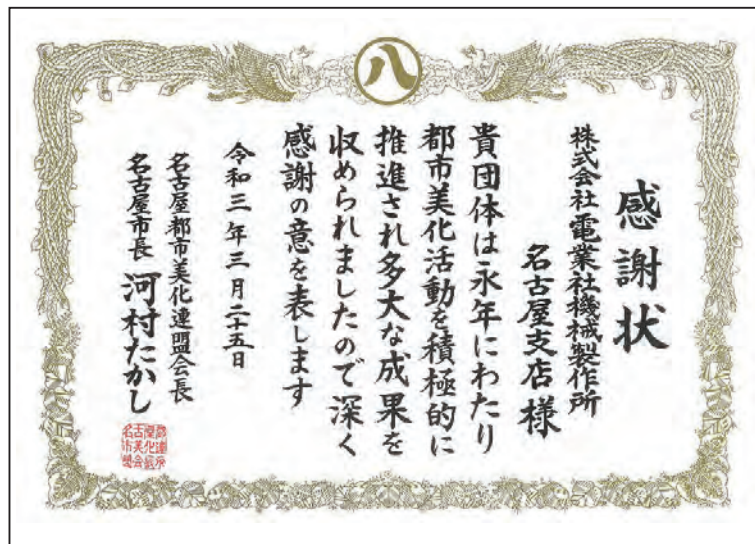 八
感謝状
株式会社電業社機械製作所
名古屋支店様
貴団体は永年にわたり
都市美化活動を積極的に
推進され多大な成果を
収められましたので深く
感謝の意を表します
令和三年三月二十五日
名古屋都市美化連盟会長
名古屋市長 河村たかし